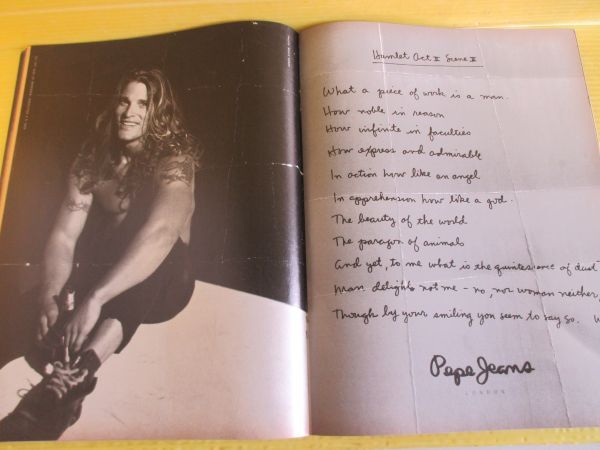 Hamlet Act II Scene II
What a piece of work is a man.
How noble in reason
How infinite in faculties
How express and admirable
In action how like an angel
In apprehension how like a god.
The beauty of the world
The paragon of animals
And yet, to me what is the quintessence of dust
man delights not me - no, nor woman neither,
Though by your smiling you seem to say so.
Pepe Jeans
LONDON